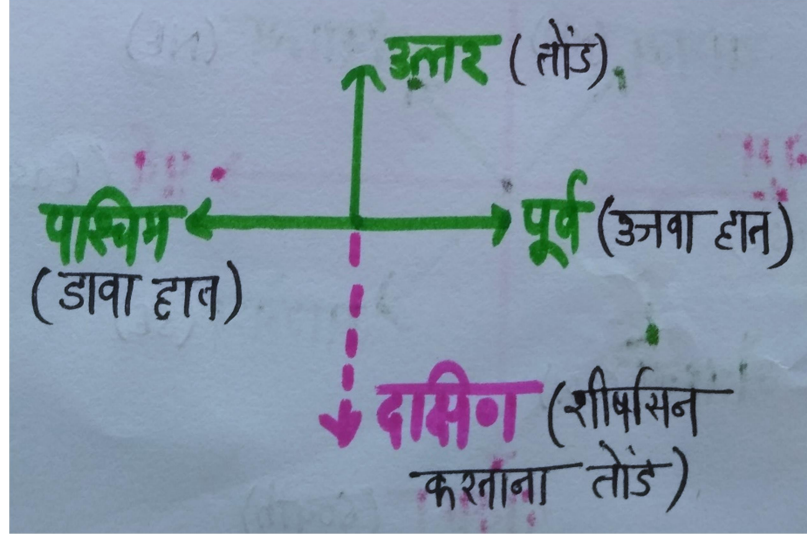 उत्तर (तोंड)
पश्चिम
(डावा हात)
पूर्व (उजवा हात)
दक्षिण (शीर्षासन
करताना तोंड)